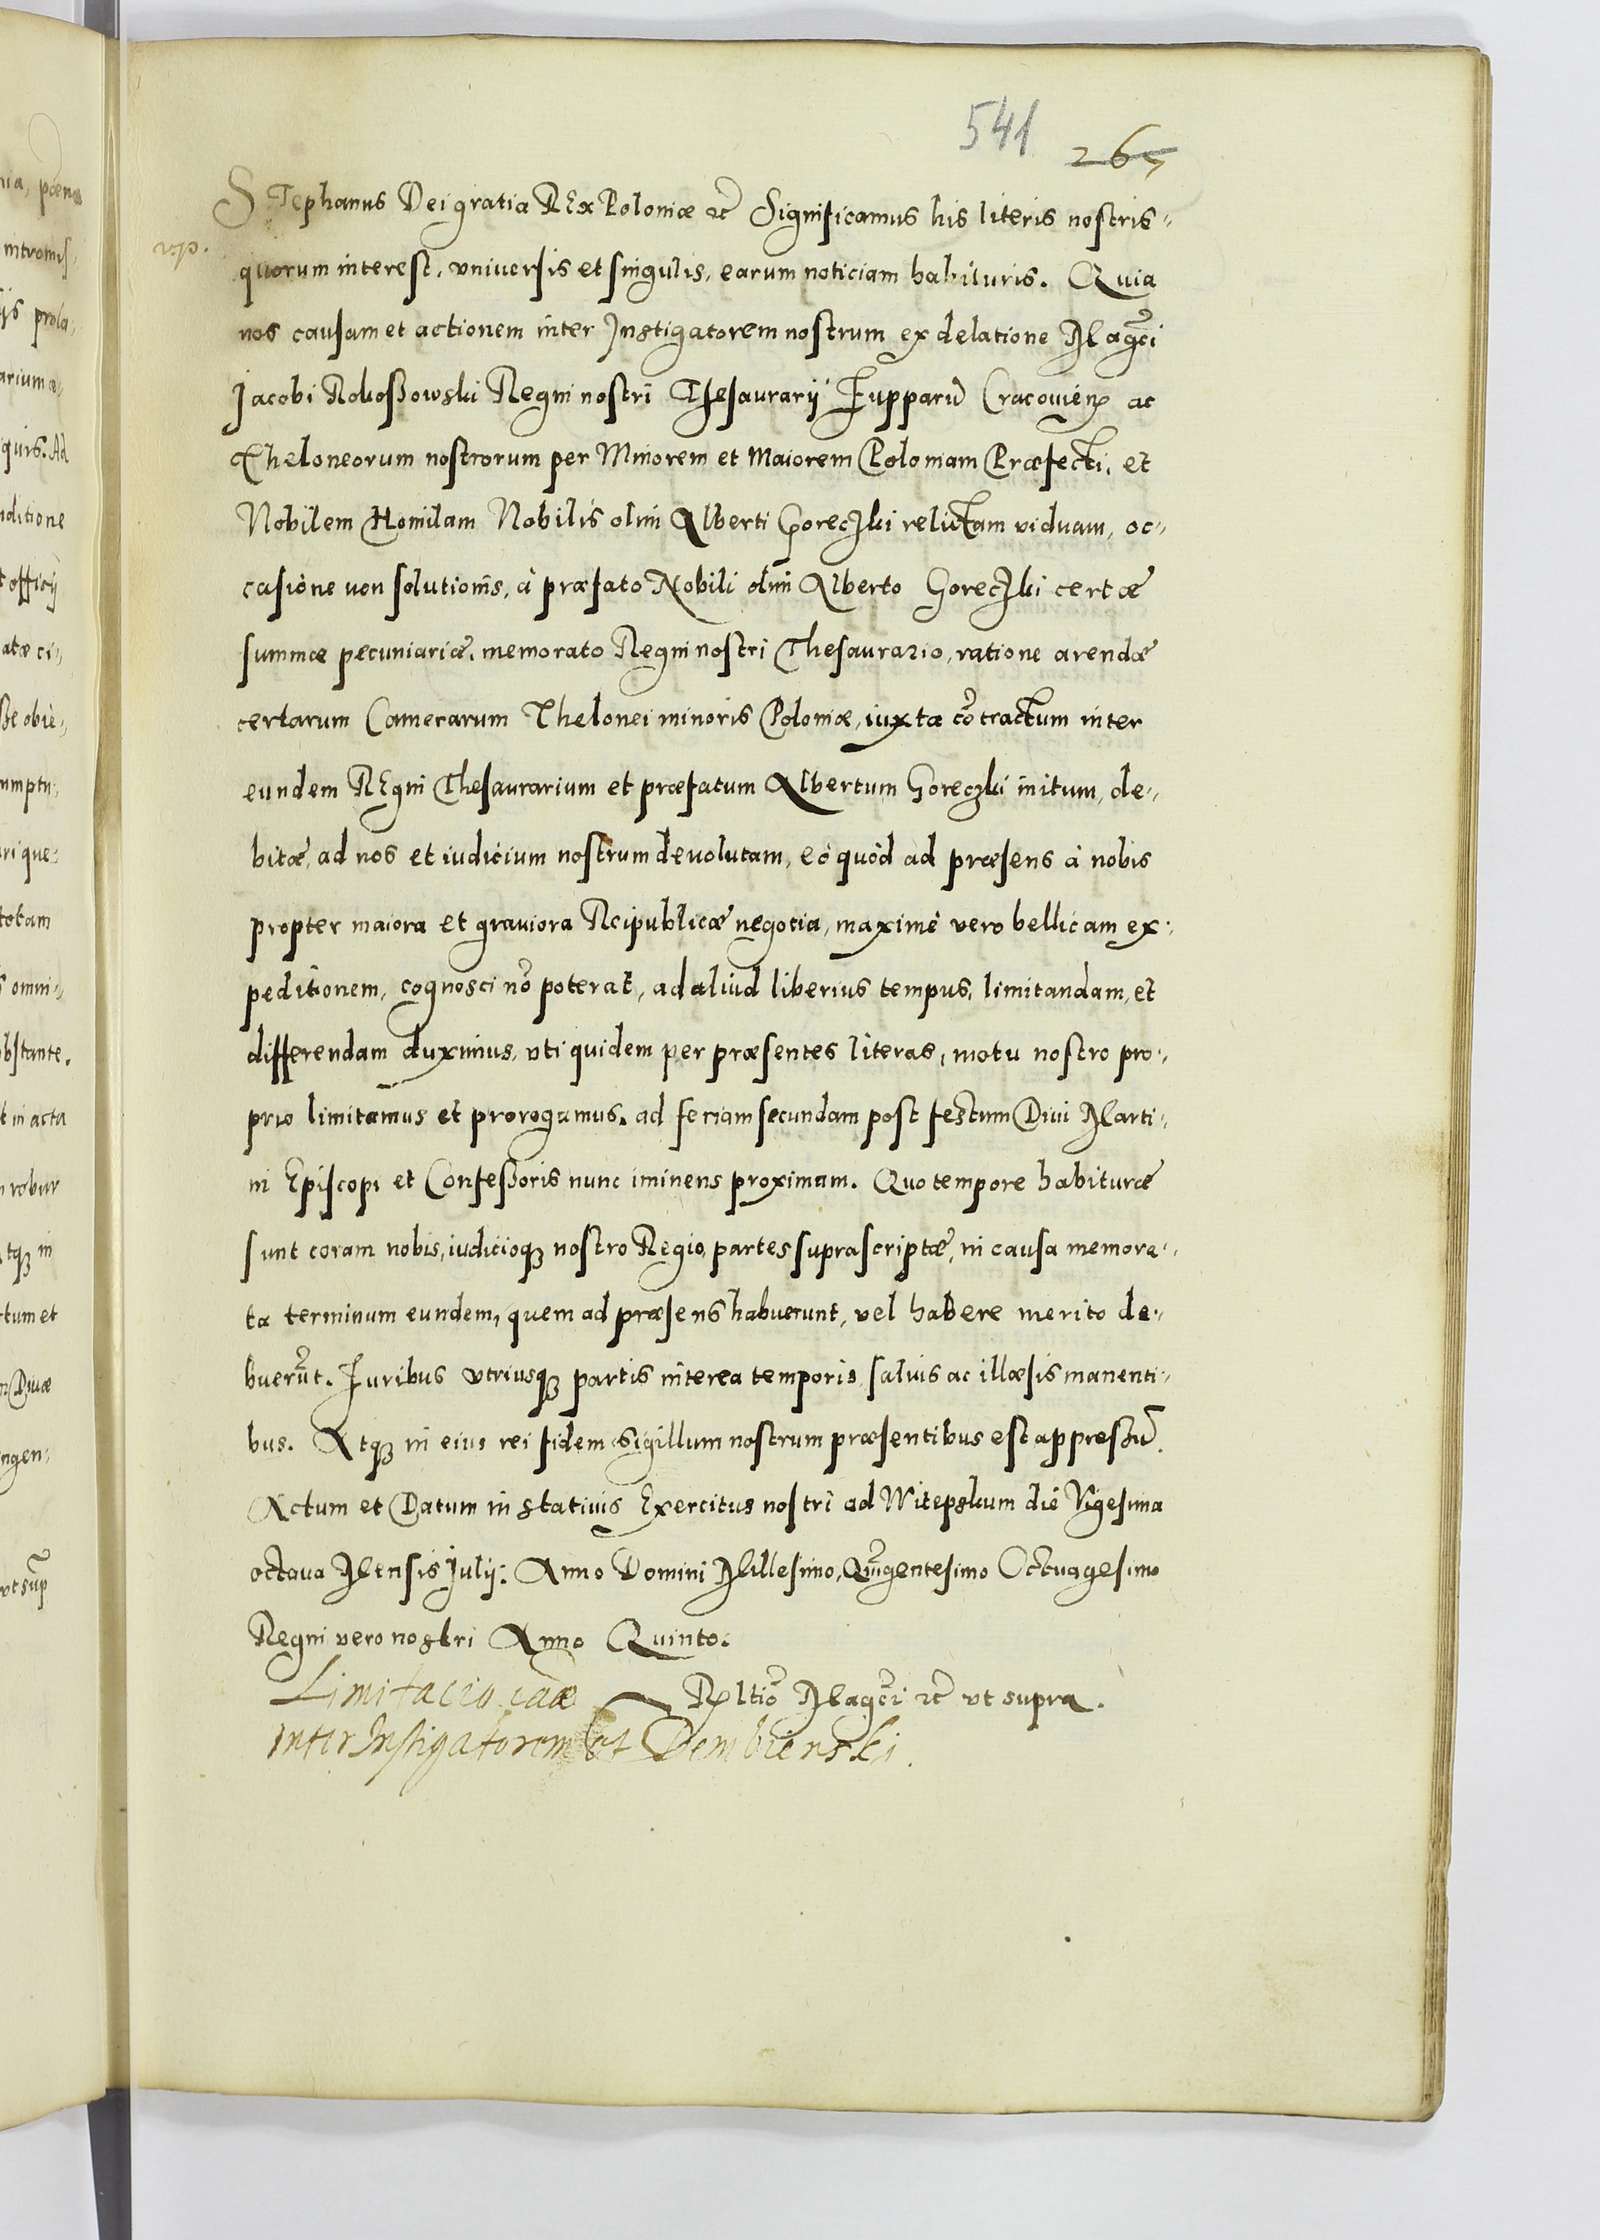 541
267
STephanus Dei gratia REx Poloniæ etc̃ Significamus his literis nostris,
quorum interest, vniuersis et singulis, earum noticiam habituris. Quia
nos causam et actionem inter Instigatorem nostrum ex delatione Magci
Jacobi Rokoßowski Regni nostri Thesaurarij Zupparũ Cracouien ac
Theloneorum nostrorum per Minorem et Maiorem Poloniam Præfecti, et
Nobilem Homilam Nobilis olim Alberti Goreczki relictam viduam, oc-
casione non solutionis, à præfato Nobili olim Alberto Goreczki certæ
summæ pecuniariæ, memorato Regni nostri Thesaurario, ratione arendæ
certarum Camerarum Thelonei minoris Poloniæ, iuxta cõtractum inter
eundem REgni Thesaurarium et præfatum Albertum Goreczki initum, de-
bitæ, ad nos et iudicium nostrum deuolutam, eò quòd ad præsens à nobis
propter maiora et grauiora Reipublicæ negotia, maximè vero bellicam ex-
peditionem, cognosci nõ poterat, ad aliud liberius tempus, limitandam, et
differendam duximus, vti quidem per præsentes literas, motu nostro pro-
prio limitamus et prorogamus, ad feriam secundam post festum Diui Marti-
ni Episcopi et Confeßoris nunc iminens proximam. Quo tempore habituræ
sunt coram nobis, iudicioq nostro Regio, partes suprascriptæ, in causa memora-
ta terminum eundem, quem ad præsens habuerunt, vel habere merito de-
buerũt. Iuribus vtriusq partis interea temporis saluis ac illæsis manenti-
bus. Atq in eius rei fidem Sigillum nostrum præsentibus est appressũ.
Actum et Datum in statiuis Exercitus nostri ad Witepskum die Vigesima
octaua Mensis Julij. Anno Domini Millesimo, Quĩgentesimo Octuagesimo
Regni vero nostri Anno Quinto.
Limitacio caæ Rltio Magci etc̃ vt supra.
inter Instigatorem et Dembienski.